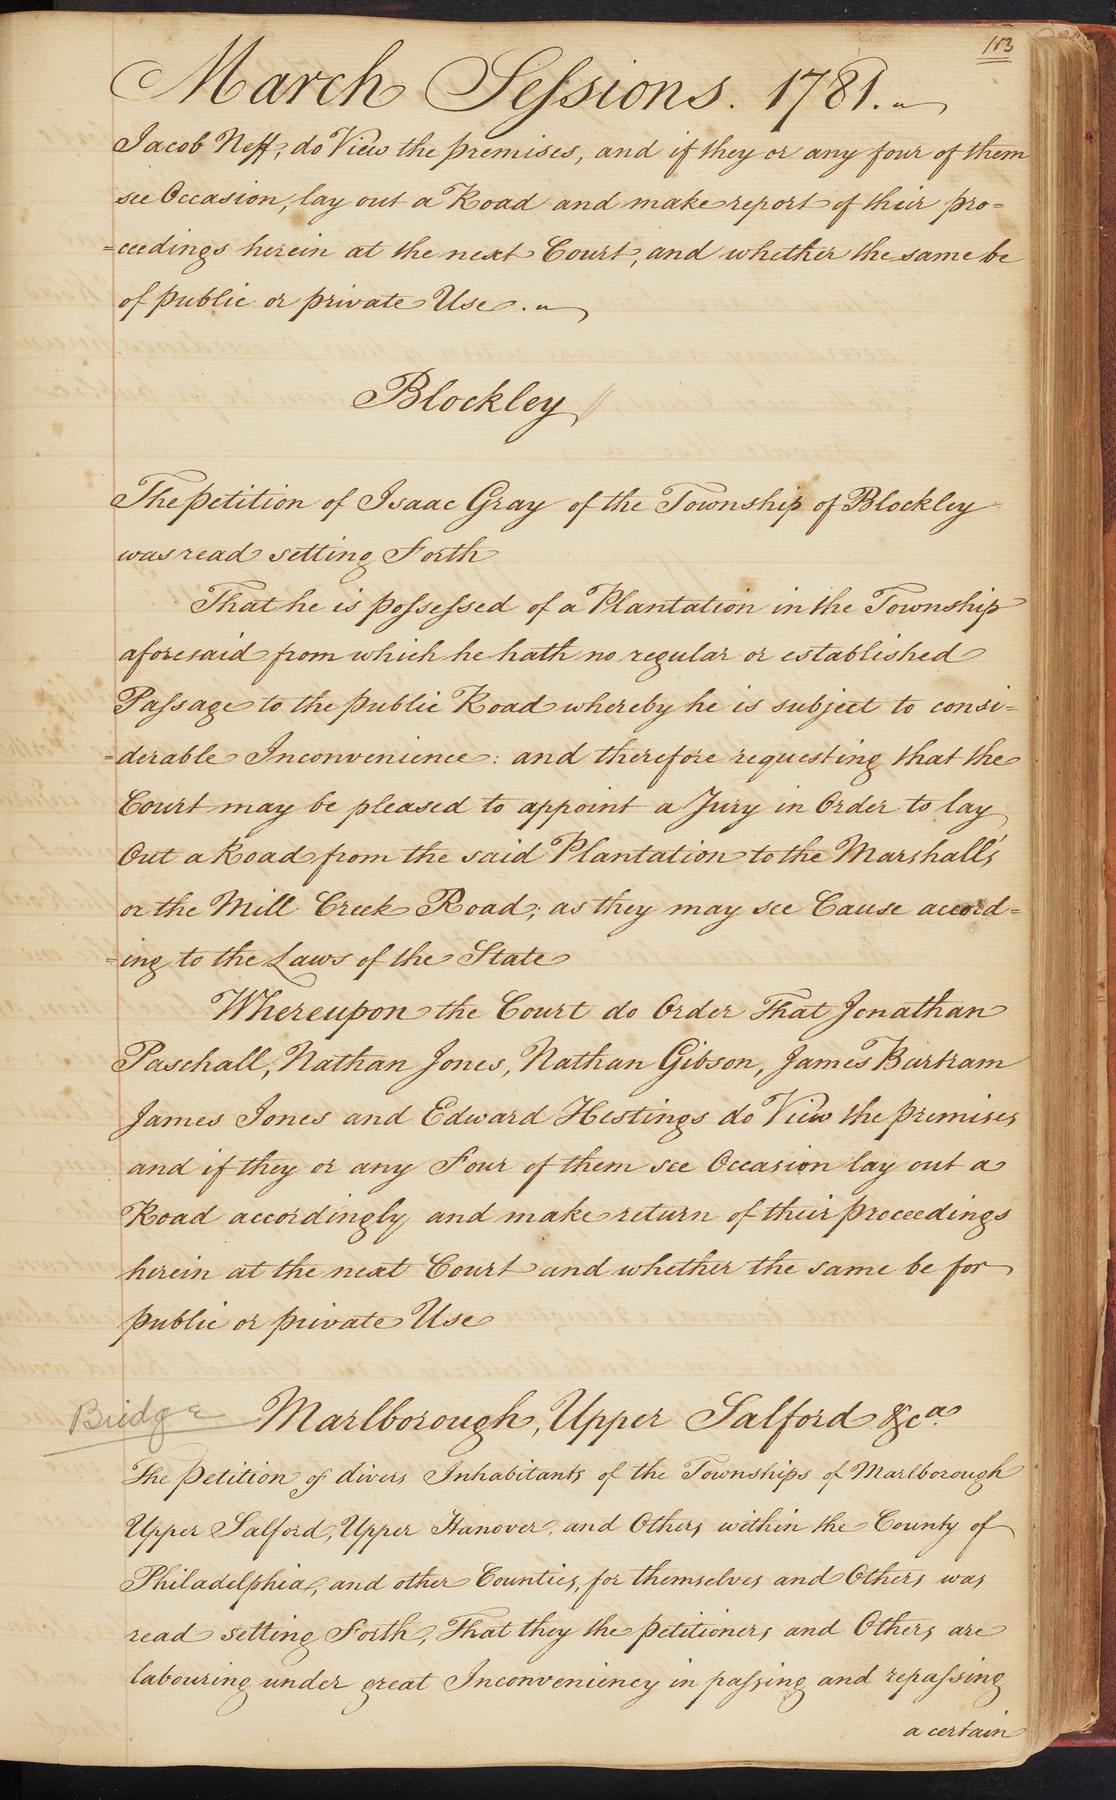 113
March Sessions. 1781.
Jacob Neff, do View the premises, and if they or any four of them
see Occasion, lay out a Road and make report of their pro=
=ceedings herein at the next Court, and whether the same be
of public or private Use.
Blockley
The petition of Isaac Gray of the Township of Blockley
was read setting Forth
That he is possessed of a Plantation in the Township
aforesaid from which he hath no regular or established
Passage to the public Road whereby he is subject to consi=
=derable Inconvenience: and therefore requesting that the
Court may be pleased to appoint a Jury in Order to lay
Out a Road from the said Plantation to the Marshall's
or the Mill Creek Road; as they may see Cause accord=
=ing to the Laws of the State
Whereupon the Court do Order That Jonathan
Paschall, Nathan Jones, Nathan Gibson, James Bartram
James Jones and Edward Hestings do View the premises
and if they or any Four of them see Occasion lay out a
Road accordingly and make return of their proceedings
herein at the next Court and whether the same be for
public or private Use
Bridge Marlborough, Upper Salford &ca.
The petition of divers Inhabitants of the Townships of Marlborough
Upper Salford, Upper Hanover, and Others within the County of
Philadelphia, and other Counties, for themselves and Others was
read setting Forth, That they the petitioners and Others are
labouring under great Inconveniency in passing and repassing
a certain